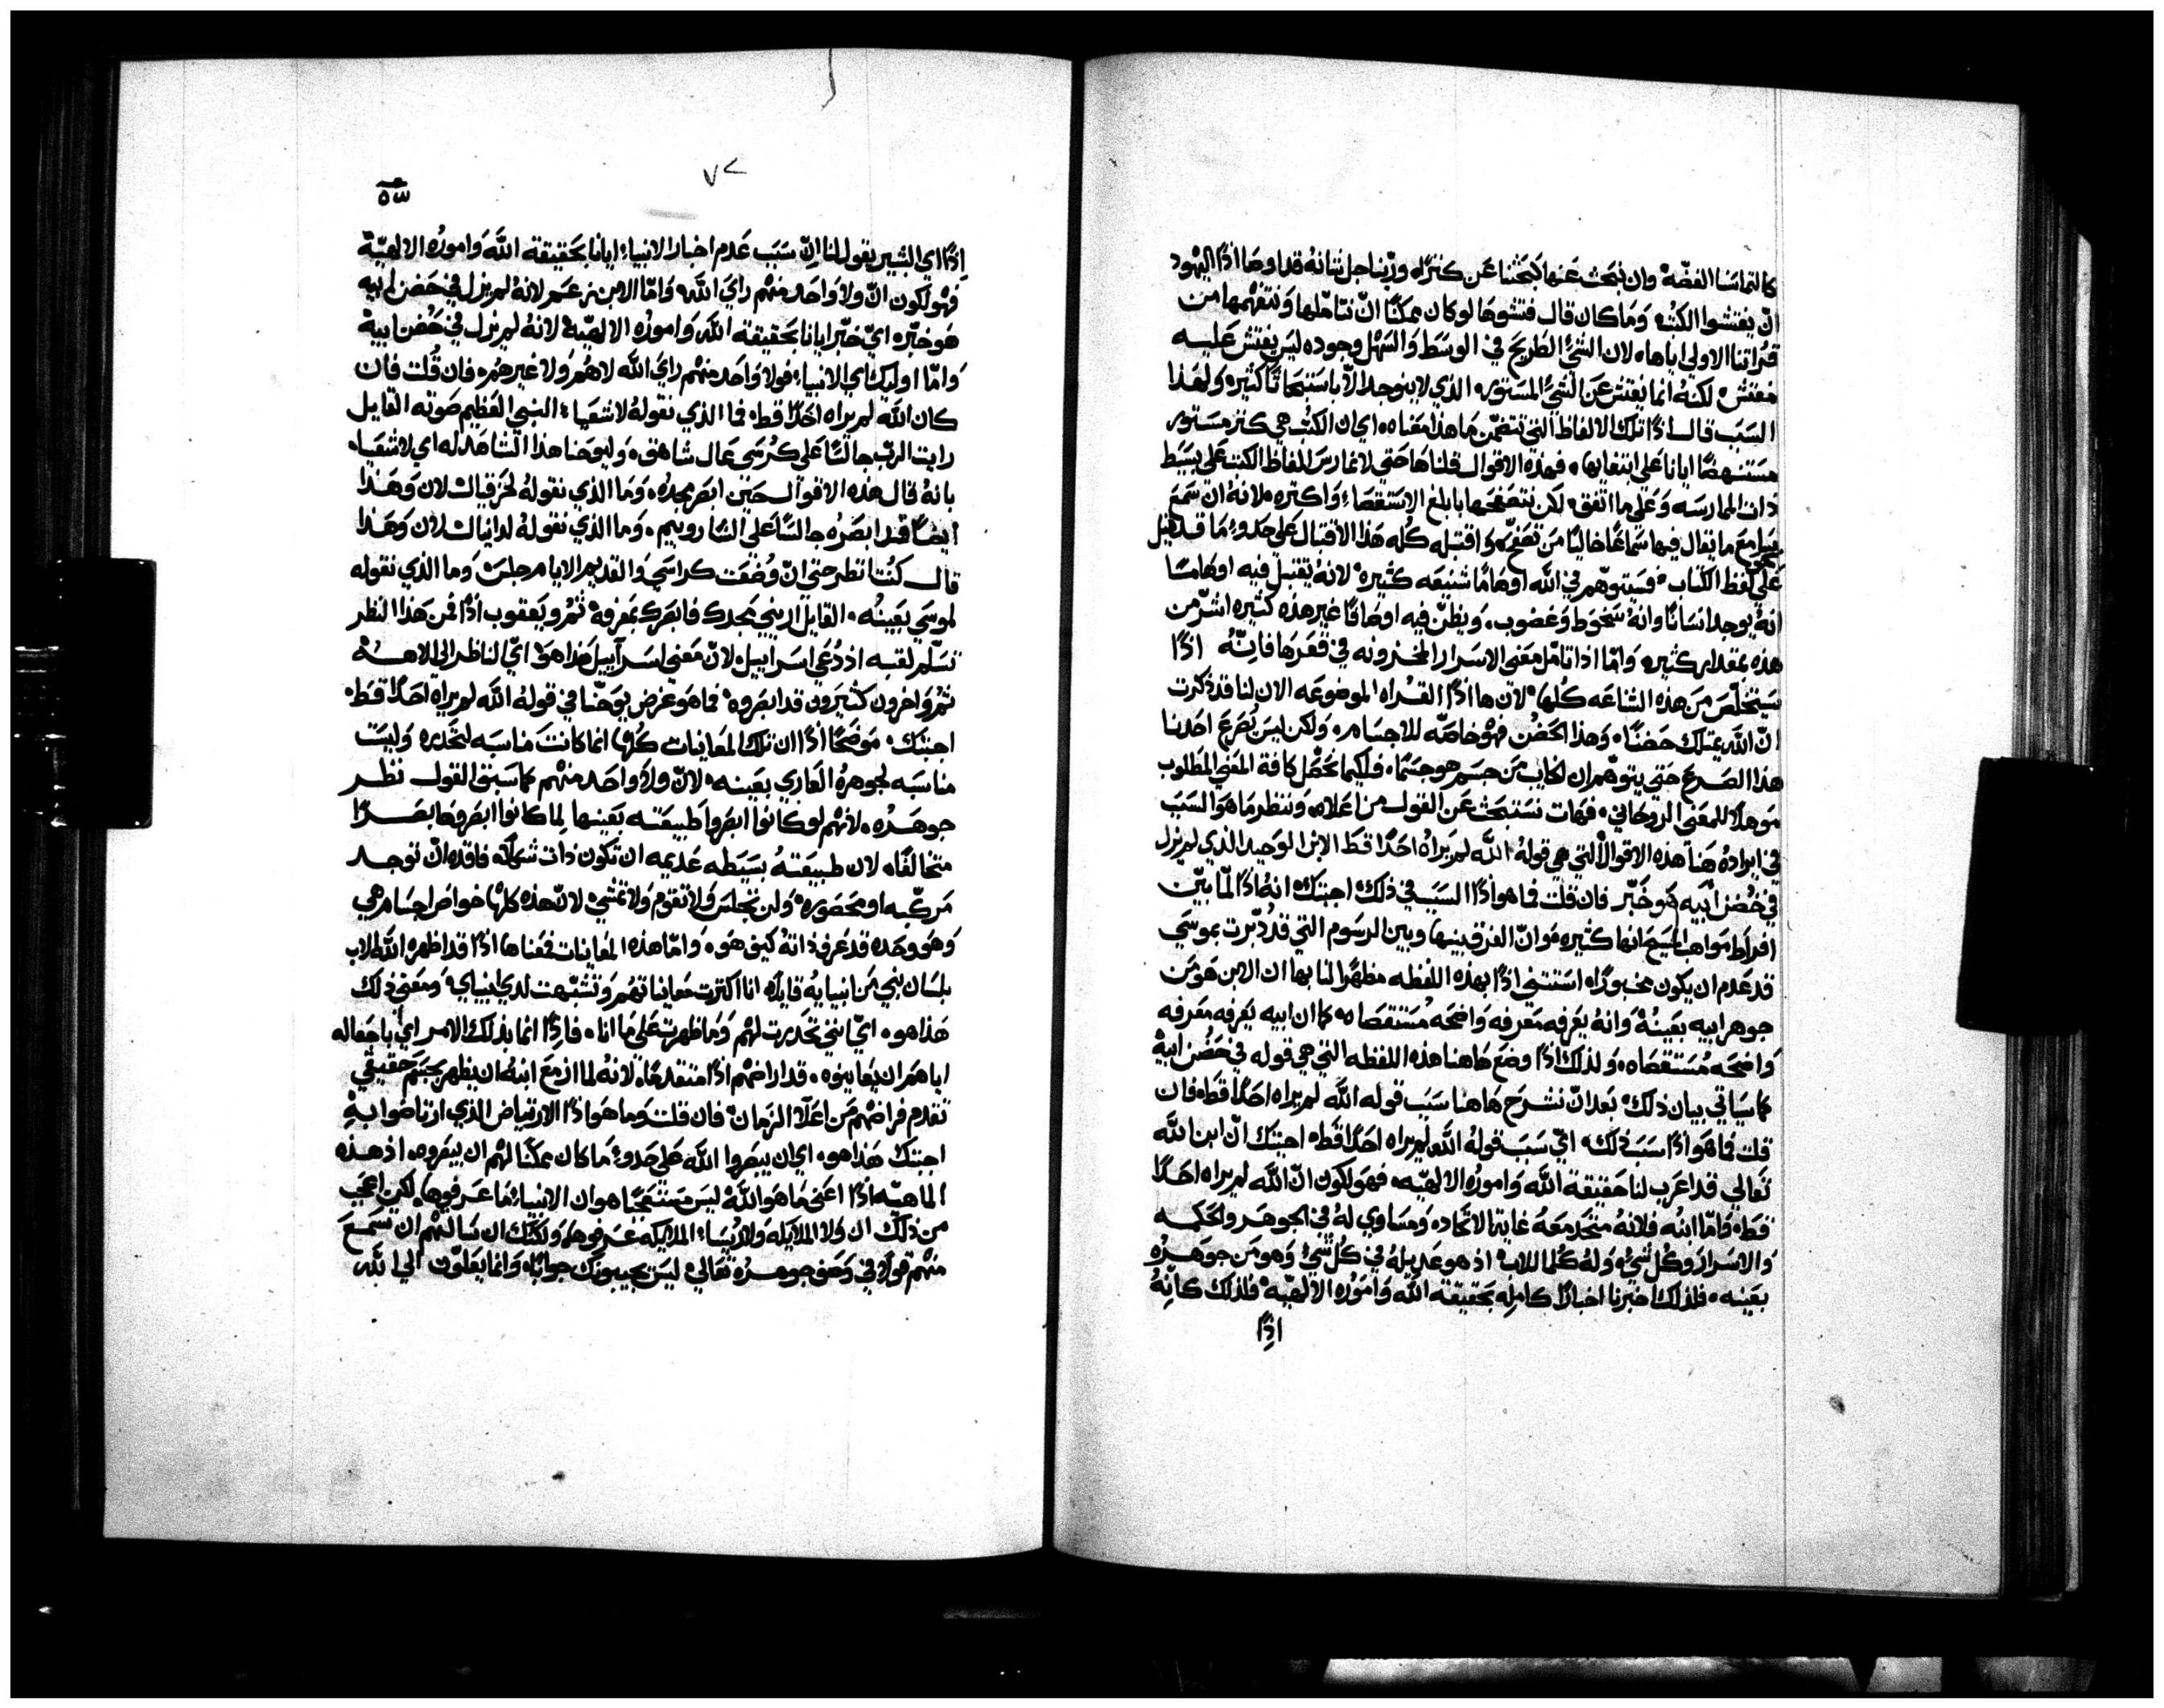 كالتماسنا الفضّه وان نبحث عنها كبحثنا عن كنزًا، وربّنا جل شانهُ قد اوصا اذًا اليهود
انّ يفتشوا الكتُب وَمَا كان قال فتشوهَا لو كان ممكنًا انّ نتاملها وَنتفهمها من
قراتنا الاولى اياها، لان الشيُ الطريح في الوسَط وَالسَهل وجوده ليسَ يفتش عليه
مفتش، لكنهُ انما يفتش عَن الشيُ المستور، الذي لا يتوجد الّا باستبحاثًا كثيره ولهَذا
السَبَب قال اذًا تلك الالفاظ التي تتضمّن مَا هذا مَعناه، اي ان الكتُب هي كنز مَستور
مستنهضًا ايانا عَلى ابتغايها، فهذه الاقوال قلناهَا حَتي لا نمارسَ الفاظ الكتُب عَلى بسَيط
ذات الممارسَه وَعَلى ما اتفق، لكن نتصَفحَها بابلغ الاستقصَاء، وَاكثره، لانهُ ان سَمعَ
مَا يقال فيها سَماعًا خاليًا مَن تصَفّح، وَاقتبله كُله هَذا الاقتبال عَلى حَدو، مَا قد قيل
عَلى لفظ الكتاب، فسَيتوهّم في الله اوهامًا شنيعَه كثيره، لانهُ يقتبل فيه
انهُ يوجد انسَانًا وانهُ سَخوط وَغضوب، وَيظنّ فيه اوصَافًا غير هذه كثيره اشرّ من
هذه بمقدار كثير، وَامّا اذا تامّل مَعَني الاسرار المخزونه في قعَرهَا فانّهُ اذًا
سَيتخلّصَ مَن هذه الشناعَه كُلها، لان ها اذًا القراه الموضوعَه الان لنا قد ذكرت
انّ اللّه يمتلك حَضنًا، وَهذا الحَضُن فهوَ خاصّه للاجسَام، وَلكن ليسَ يُصَرعَ احَدنا
هذا الصَرعَ حَتي يتوهّم ان الخايب مَن جسَم هو جسَمًا، فلكيما نحَصّل كافة المَعني المطلوب
مَوهلًا للمعَني الروحَاني، فهَات نسَتبحَث عَن القول من اعَلاه، وَننظر مَا هوَ السَبَب
في ايرادهُ هَنا هذه الاقوال التي هي قولهُ اللّه لم يراهُ احَدًا قط الابن الوَحيد الذي لم يزل
في حُضن ابيه هو خَبّر فان قلت فما هو اذًا السَبَب في ذلك، اجبتك انهُ اذًا لمّا بيّن
افراط مَواهب المسَيح انها كثيره، وَانّ الفرق بينها وبين الرسَوم التي قد دُبّرت بموسَي
قد عَدم ان يكون مخبورًا، استنتجَ اذًا بهذه اللفظه مظهرًا لنا بها ان الابن هوَ مَن
جوهَر ابيه بعَينهُ وَانهُ يعَرفه مَعَرفه وَاضحَه مُستقصَاه، كما ان ابيه يعَرفه مَعَرفه
وَاضحَه مُسَتقصَاه، وَلذلك اذًا وضعَ هَاهنا هذه اللفظه التي هي قوله في حَضُن ابيهْ
كما سَياتي بيان ذلك، بعَد انّ نشرحَ هَاهنا سَبَب قوله اللّه لم يراه احَدًا قط، فان
قلت فما هَو اذًا سَبَب ذلك، ايّ سَبَب قولهُ اللّه لم يراه احَدًا قط، اجبتك انّ ابن اللّه
تعَالي قد اعَرب لنا حَقيقة اللّه وَامورُه الالهيّه، فهوَ لكون انّ اللّه لم يراه احَدًا
قط، وَامّا ابنهُ فلانهُ متحَد مَعَهُ غاية الاتحَاد، وَمسَاوي لهُ في الجوهَر وَالحَكمه
وَالاسَرار وَكُل شيُ وَلهُ كُلما للاب، اذ هو عَديلهُ في كُل شيُ، وَهو مَن جوهَرهُ
بعَينه، فلذلك اخبرنا اخبارًا كامله بحَقيقة اللّه وَامَورُه الالهيّه، فلذلك كانّهُ
اذًا
٧٢
اذًا اي البشير يقول لنا انّ سَبَب عَدم اخبار الانبياء ايانا بحَقيقة اللّه وَامورُه الالهيّة
فهوَ لكون انّ ولا وَاحَد منهم رايَ اللّه، وَامّا الابن لانهُ لم يزل في حَضن ابيه
هو خبّر، ايّ خبّر ايانا بحَقيقة اللّه وَامورُه الالهيّه، لانهُ لم يزل في حُضن ابيهْ
وَامّا اوليك اي الانبياء، فولا وَاحَد منهم رايَ اللّه لا هُم وَلا غيرهُم، فان قُلت فان
كان اللّه لم يراه احَدًا قط، فما الذي نقولهُ لاشعَياء النبي العَظيم صَوته القايل
رايت الربّ جالسًا عَلى كرُسَي عَال شاهق، وَليوحَنا هذا الشاهَد له اي لاشعَيا،
بانهُ قال هذه الاقوال حَين ابصَر مجدهُ، وَمَا الذي نقولهُ لحَزقيال لان وَهَذا
ايضًا قد ابصَرُه جالسًا عَلى الشاروبيم، وَمَا الذي نقولهُ لدانيال لان وَهَذا
قال كُنت انظر حَتي انّ وُضعَت كراسَي وَالقديم الايام جلسَ، وَما الذي نقوله
لموسَي بعَينُه، القايل ارينى مَجدك فابصَرك بمَعرفة، ثمُ ويعَقوب اذًا فمن هَذا النظر
تسَلّم لقبه اذ دُعَي اسَراييل، لانّ مَعني اسَراييل هَذا هوَ ايّ الناظر الي الالاه
ثمُ وَاخرون كثيرون قد ابصَروه، فما هو غَرض يوحَنّا في قوله اللّه لم يراه احَدًا قط،
اجبتك، مَوضحًا اذًا ان تلك المعَاينات كُلها انما كانت مَناسَبه لتحَدره، وَليسَت
مناسَبه لجوهرهُ العَاري بعَينه، لانّ ولا وَاحَد منهم كما سَبق القول نظر
جوهَرهُ، لانهم لو كانوا ابصَروا طبيعَته بعَينها لما كانوا ابصَروها بصَرًا
متخالفًا، لان طبيعَتهُ بسَيطه عَديمه ان تكون ذات شكل، فاقده انّ توجد
مَركّبه او محَصوره، وَلن تجلسَ وَلا تقوم وَلا تمشي، لانّ هذه كلها خواصّ اجسَام هي
وَهوَ وحَده قد عَرف ذاتهُ كيف هوَ، وَامّا هذه المعَاينات فمعَناها اذًا قد اظهره اللّه الاب
بلسَان نبي مَن انبيايهُ قايلًا، انا اكثرت معَايناتهم وَتشبّهت لدي انبياي، وَمَعَني ذلك
هَذا هو، ايّ انني تحَدرت لهُم وَما ظهرت عَلى مَا انا، فاذًا انما بذلك الامر اي باجعَاله
اياهَم ان يعَاينوه، قد اراضهُم اذًا متقدمًا، لانهُ لما ازمَعَ ابنهُ ان يظهر بجسَم حَقيقي
تقدم فراضهُم مَن اعَلا الزمان، فان قلت وَما هوَ اذًا الارتياض الذي ارتاضوا بهِ
اجبتك هَذا هو، اي ان يبصَروا اللّه عَلى حَدو، مَا كان ممكنًا لهُم ان يبصَروه، اذ هَذه
الماهيّه اذًا اعَني مَا هوَ اللّهُ ليسَ مستعَجبًا هو ان الانبياء مَا عَرفوها، لكن اعَجب
من ذلك ان وَلا الملايكه وَلا رُؤسَاء الملايكه عَرفوها، وَلكنك ان سَالتهم ان تسَمعَ
منهُم قولًا في وَصَف جوهَرهُ تعَالي، ليسَ يجيبونك جوابًا، وَانما يعَلّون الي اللّه